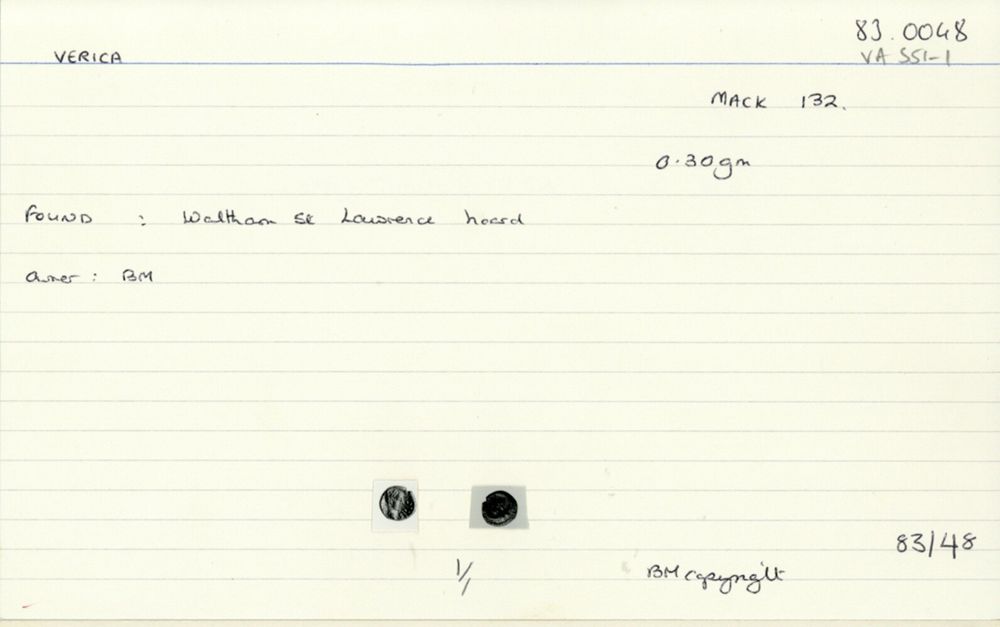 83.0048
VERICA
VA 551-1
MACK 132.
0.30gm
FOUND : Waltham St Lawrence hoard
Owner : BM
83/48
1/1
BM copyright